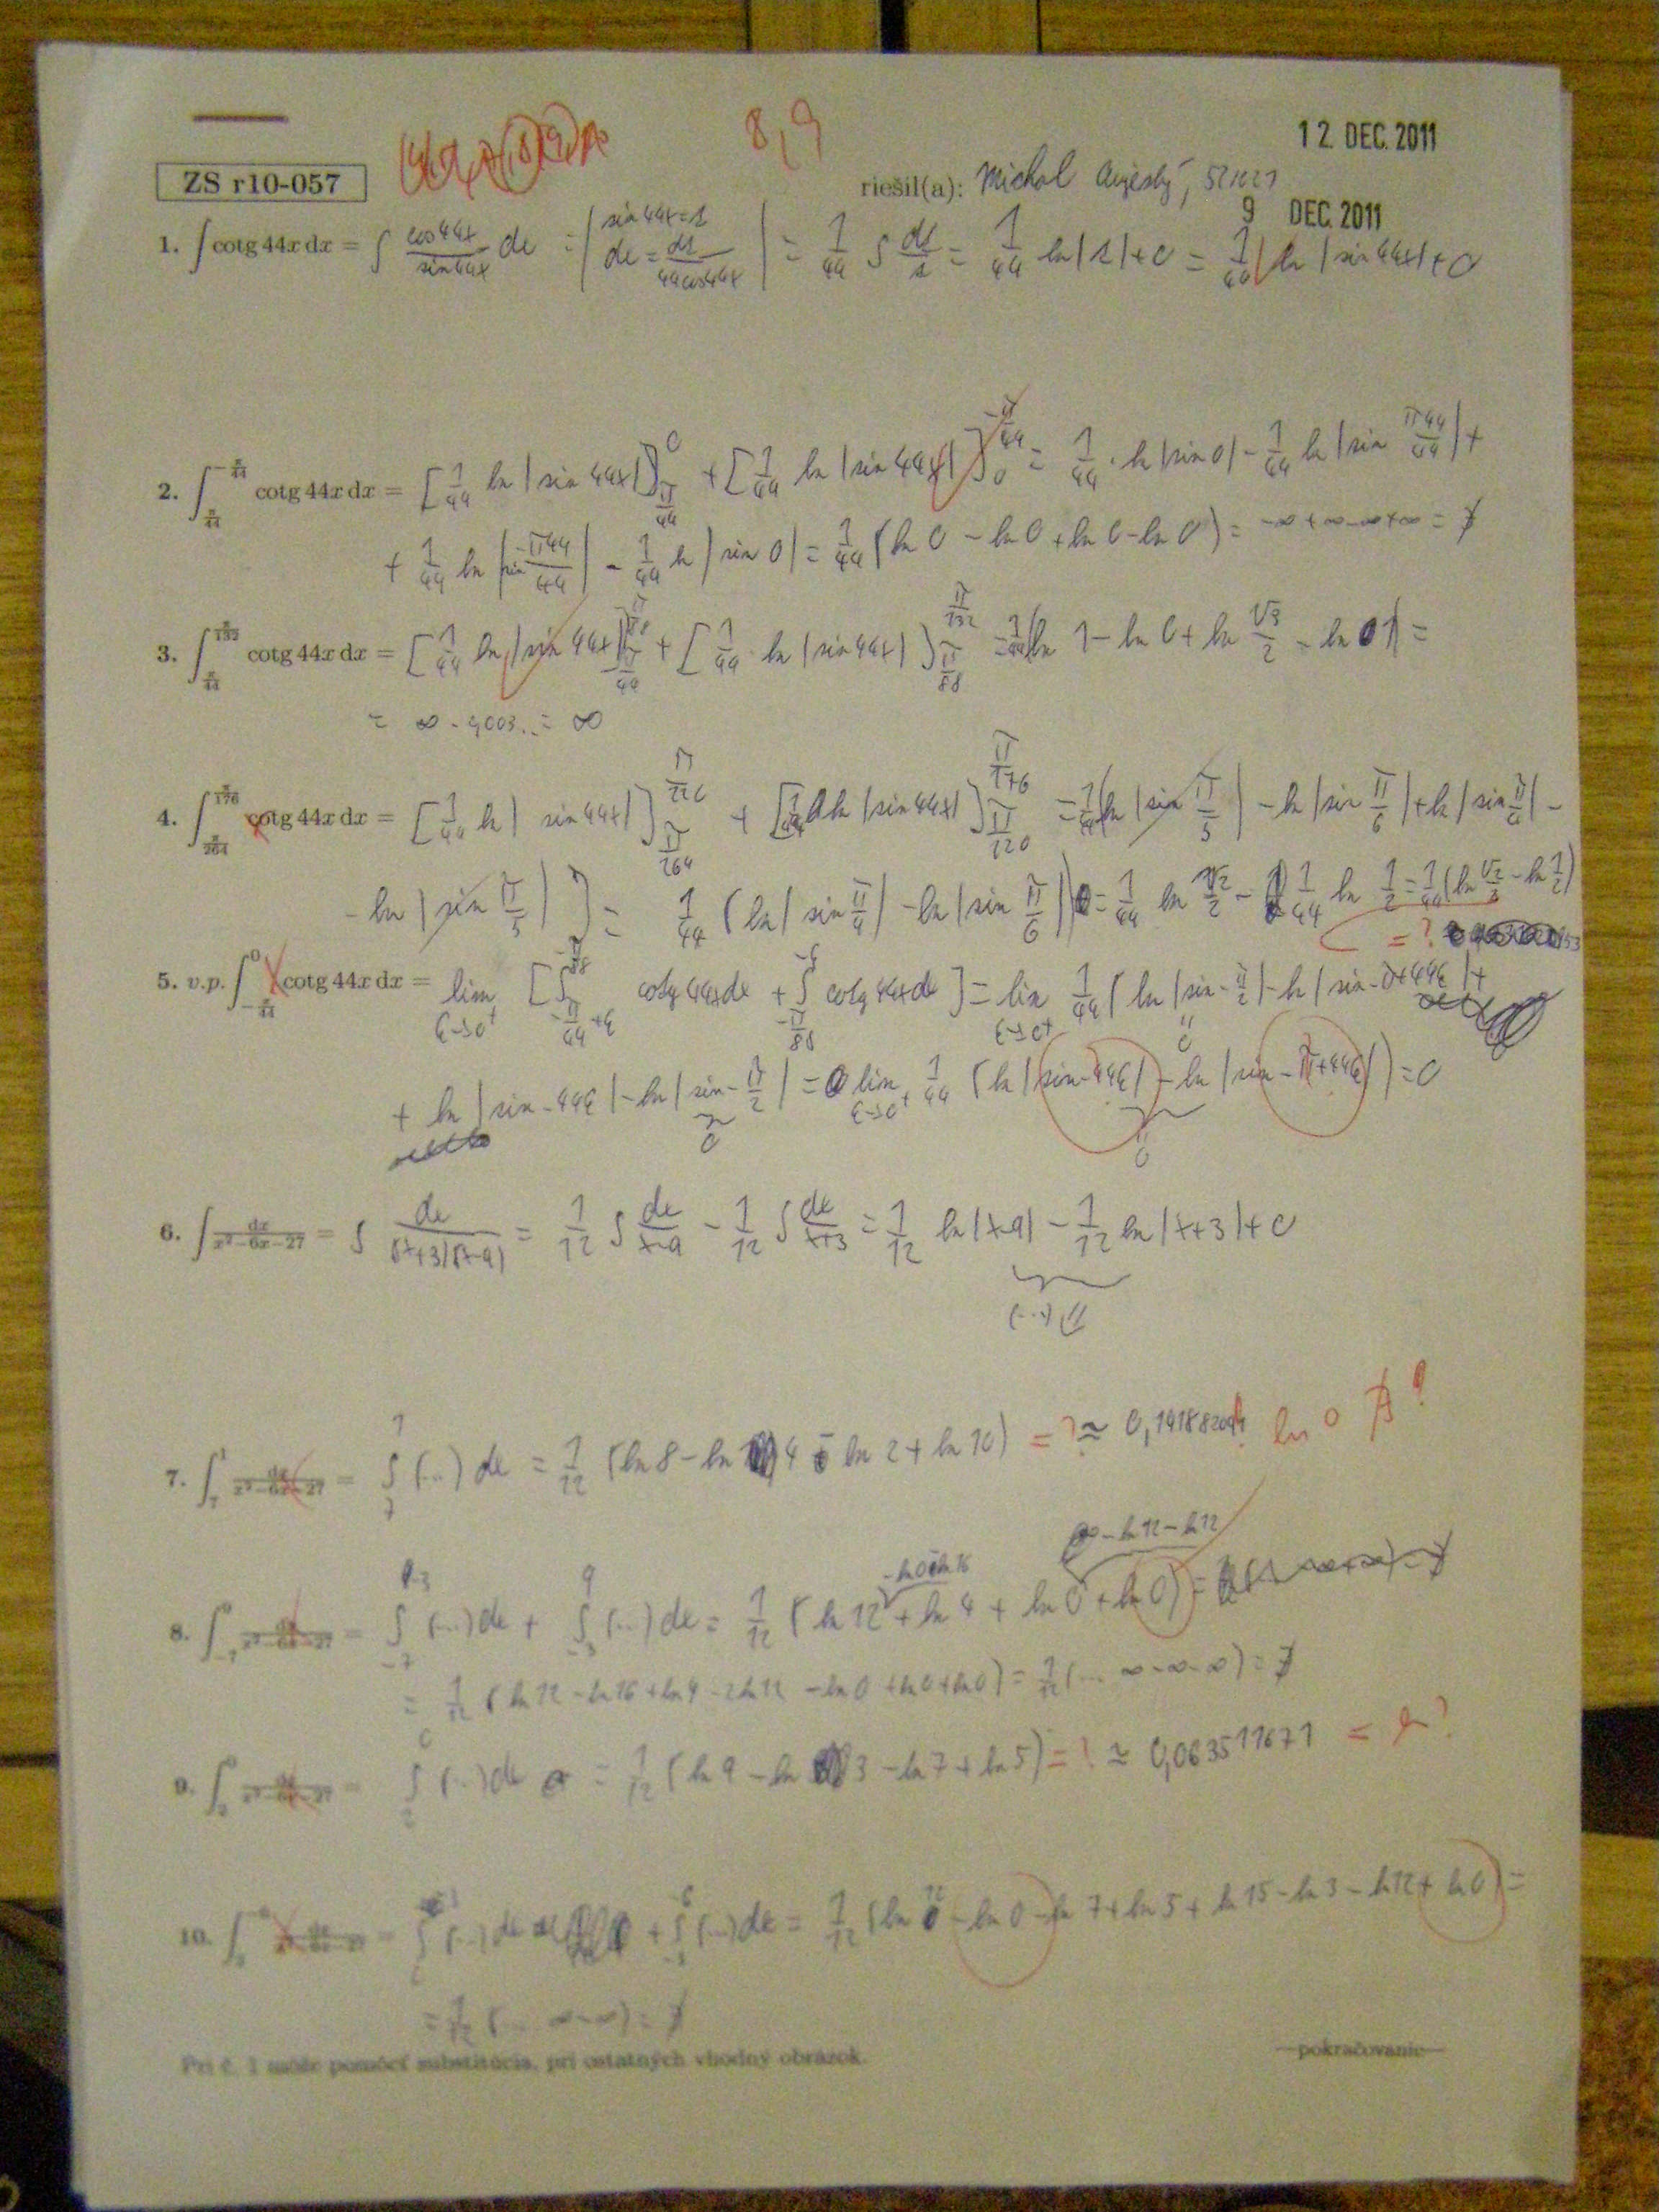 12. DEC. 2011
8,9
ZS r10-057
riešil(a): Michal
9 DEC. 2011
1. ∫ cotg 44x dx = ∫ cos44x/sin44x dx = | sin 44x = s, dx = ds/(44cos44x) | = 1/44 ∫ ds/s = 1/44 ln|s| + C = 1/44 ln|sin 44x| + C
2. ∫_{π/44}^{-π/44} cotg 44x dx = [1/44 ln|sin 44x|]_{π/44}^{0} + [1/44 ln|sin 44x|]_{0}^{-π/44} = 1/44 · ln|sin 0| - 1/44 ln|sin π44/44| +
+ 1/44 ln|sin -π44/44| - 1/44 ln|sin 0| = 1/44 (ln 0 - ln 0 + ln 0 - ln 0) = -∞+∞-∞+∞ = ∄
3. ∫_{π/44}^{π/132} cotg 44x dx = [1/44 ln|sin 44x|]_{π/44}^{π/88} + [1/44 · ln|sin 44x|]_{π/88}^{π/132} = 1/44(ln 1 - ln 0 + ln √3/2 - ln 1) =
= ∞ - 0,003.. = ∞
4. ∫_{π/264}^{π/176} cotg 44x dx = [1/44 ln|sin 44x|]_{π/264}^{π/220} + [1/44 ln|sin 44x|]_{π/220}^{π/176} = 1/44(ln|sin π/5| - ln|sin π/6| + ln|sin π/4| -
- ln|sin π/5|) = 1/44 (ln|sin π/4| - ln|sin π/6|) = 1/44 ln √2/2 - 1/44 ln 1/2 = 1/44(ln √2/2 - ln 1/2)
= ?
5. v.p. ∫_{-π/44}^{0} cotg 44x dx = lim_{ε→0⁺} [∫_{-π/44+ε}^{-π/88} cotg 44x dx + ∫_{-π/88}^{-ε} cotg 44x dx] = lim_{ε→0⁺} 1/44 (ln|sin -π/2| - ln|sin -π+44ε| +
+ ln|sin -44ε| - ln|sin -π/2| = lim_{ε→0⁺} 1/44 (ln|sin -44ε| - ln|sin -π+44ε|) = 0
6. ∫ dx/(x²-6x-27) = ∫ dx/((x+3)(x-9)) = 1/12 ∫ dx/(x-9) - 1/12 ∫ dx/(x+3) = 1/12 ln|x-9| - 1/12 ln|x+3| + C
7. ∫_{7}^{1} dx/(x²-6x-27) = ∫_{7}^{1} (...) dx = 1/12 (ln 8 - ln 4 - ln 2 + ln 10) = ? ≈ ln 0 ∄ ?
8. (...) dx + ∫_{-3}^{9} (...) dx = 1/12 (ln 12 + ln 4 + ln 0 + ln 0) =
= 1/12 (ln 12 - ln 16 + ln 4 - 2ln 12 - ln 0 + ln 0 + ln 0) = 1/12 (... ∞-∞-∞) = ∄
9. (...) dx = 1/12 (ln 9 - ln 3 - ln 7 + ln 5) = ? ≈ 0,063511671 = ln?
10. (...) dx + (...) dx = 1/12 (ln 12 - ln 0 - ln 7 + ln 5 + ln 15 - ln 3 - ln 12 + ln 0) =
= 1/12 (... ∞-∞) = ∄
Pri č. 1 môže pomôcť substitúcia, pri ostatných vhodný obrázok.
—pokračovanie—